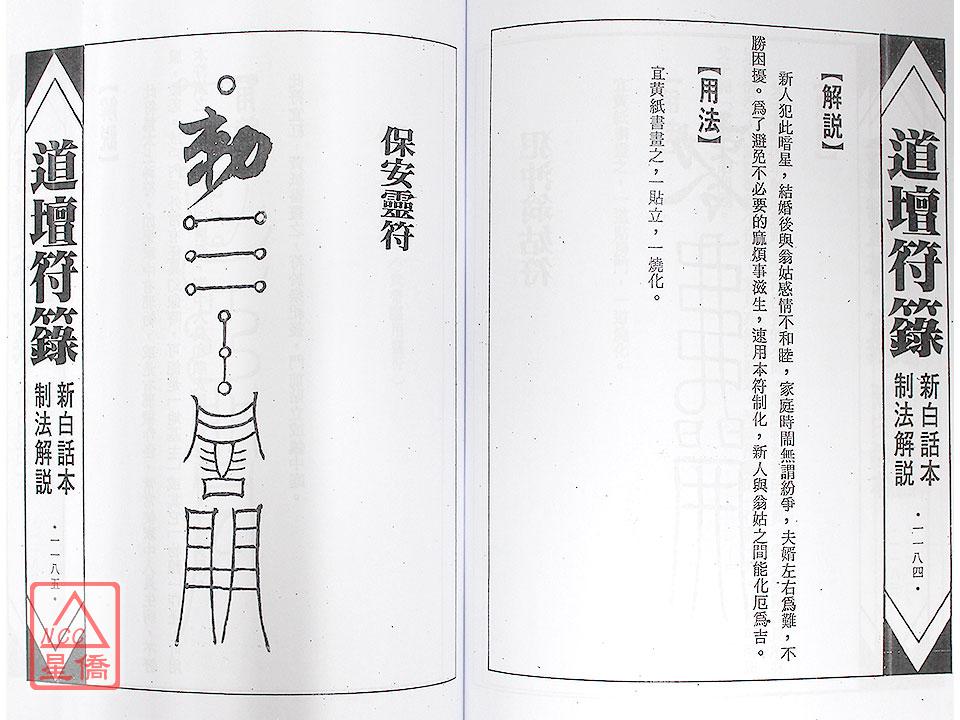 道壇符籙
新白話本
制法解説
·一一八四·
【解説】
新人犯此暗星，結婚後與翁姑感情不和睦，家庭時鬧無謂紛爭，夫婿左右爲難，不
勝困擾。爲了避免不必要的麻煩事滋生，速用本符制化，新人與翁姑之間能化厄爲吉。
【用法】
宜黄紙書畫之，一貼立，一燒化。
保安靈符
勅
道壇符籙
新白話本
制法解説
·一一八五·
NCC
星僑